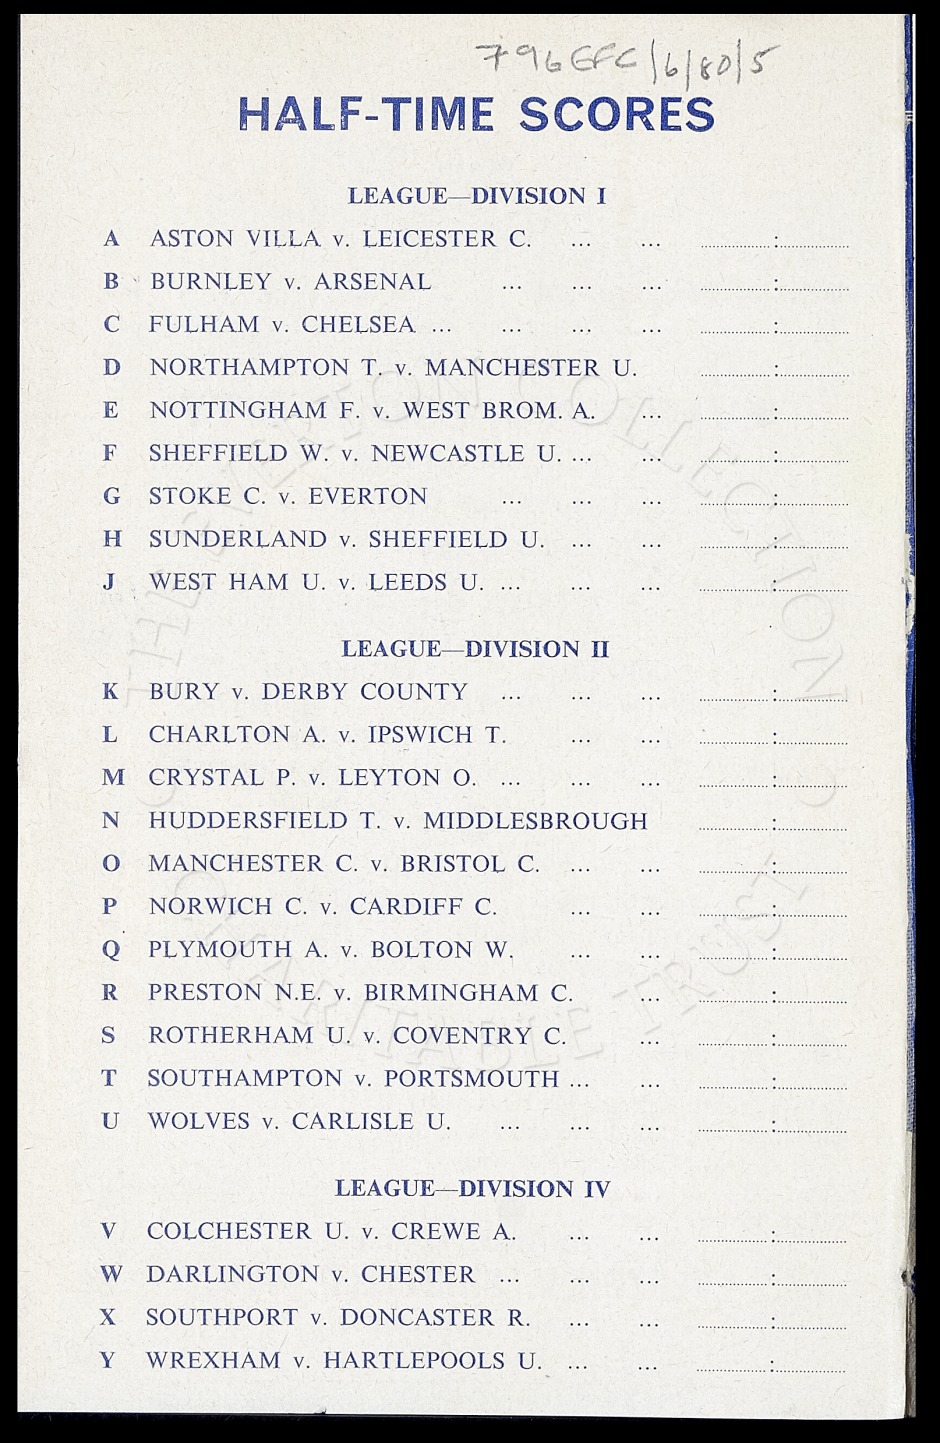 796 EFC/6/80/5
HALF-TIME SCORES
LEAGUE—DIVISION I
A ASTON VILLA v. LEICESTER C. ... ... ............:............
B BURNLEY v. ARSENAL ... ... ... ............:............
C FULHAM v. CHELSEA ... ... ... ... ............:............
D NORTHAMPTON T. v. MANCHESTER U. ............:............
E NOTTINGHAM F. v. WEST BROM. A. ... ............:............
F SHEFFIELD W. v. NEWCASTLE U. ... ... ............:............
G STOKE C. v. EVERTON ... ... ... ............:............
H SUNDERLAND v. SHEFFIELD U. ... ... ............:............
J WEST HAM U. v. LEEDS U. ... ... ... ............:............
LEAGUE—DIVISION II
K BURY v. DERBY COUNTY ... ... ... ............:............
L CHARLTON A. v. IPSWICH T. ... ... ............:............
M CRYSTAL P. v. LEYTON O. ... ... ... ............:............
N HUDDERSFIELD T. v. MIDDLESBROUGH ............:............
O MANCHESTER C. v. BRISTOL C. ... ... ............:............
P NORWICH C. v. CARDIFF C. ... ... ............:............
Q PLYMOUTH A. v. BOLTON W. ... ... ............:............
R PRESTON N.E. v. BIRMINGHAM C. ... ............:............
S ROTHERHAM U. v. COVENTRY C. ... ............:............
T SOUTHAMPTON v. PORTSMOUTH ... ... ............:............
U WOLVES v. CARLISLE U. ... ... ... ............:............
LEAGUE—DIVISION IV
V COLCHESTER U. v. CREWE A. ... ... ............:............
W DARLINGTON v. CHESTER ... ... ... ............:............
X SOUTHPORT v. DONCASTER R. ... ... ............:............
Y WREXHAM v. HARTLEPOOLS U. ... ... ............:............
THE EVERTON COLLECTION ©
CHARITABLE TRUST